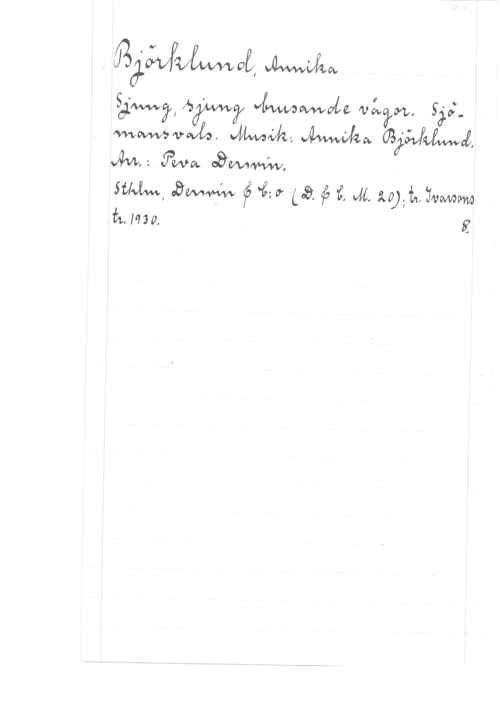 Björklund, Annika
Sjung, sjung brusande vågor. Sjö-
mansvals. Musik: Annika Björklund.
Arr.: Peva Derwin.
Sthlm, Derwin & C:o (D. & C. M. 20); tr. Ivarsons
tr. 1930. 8.